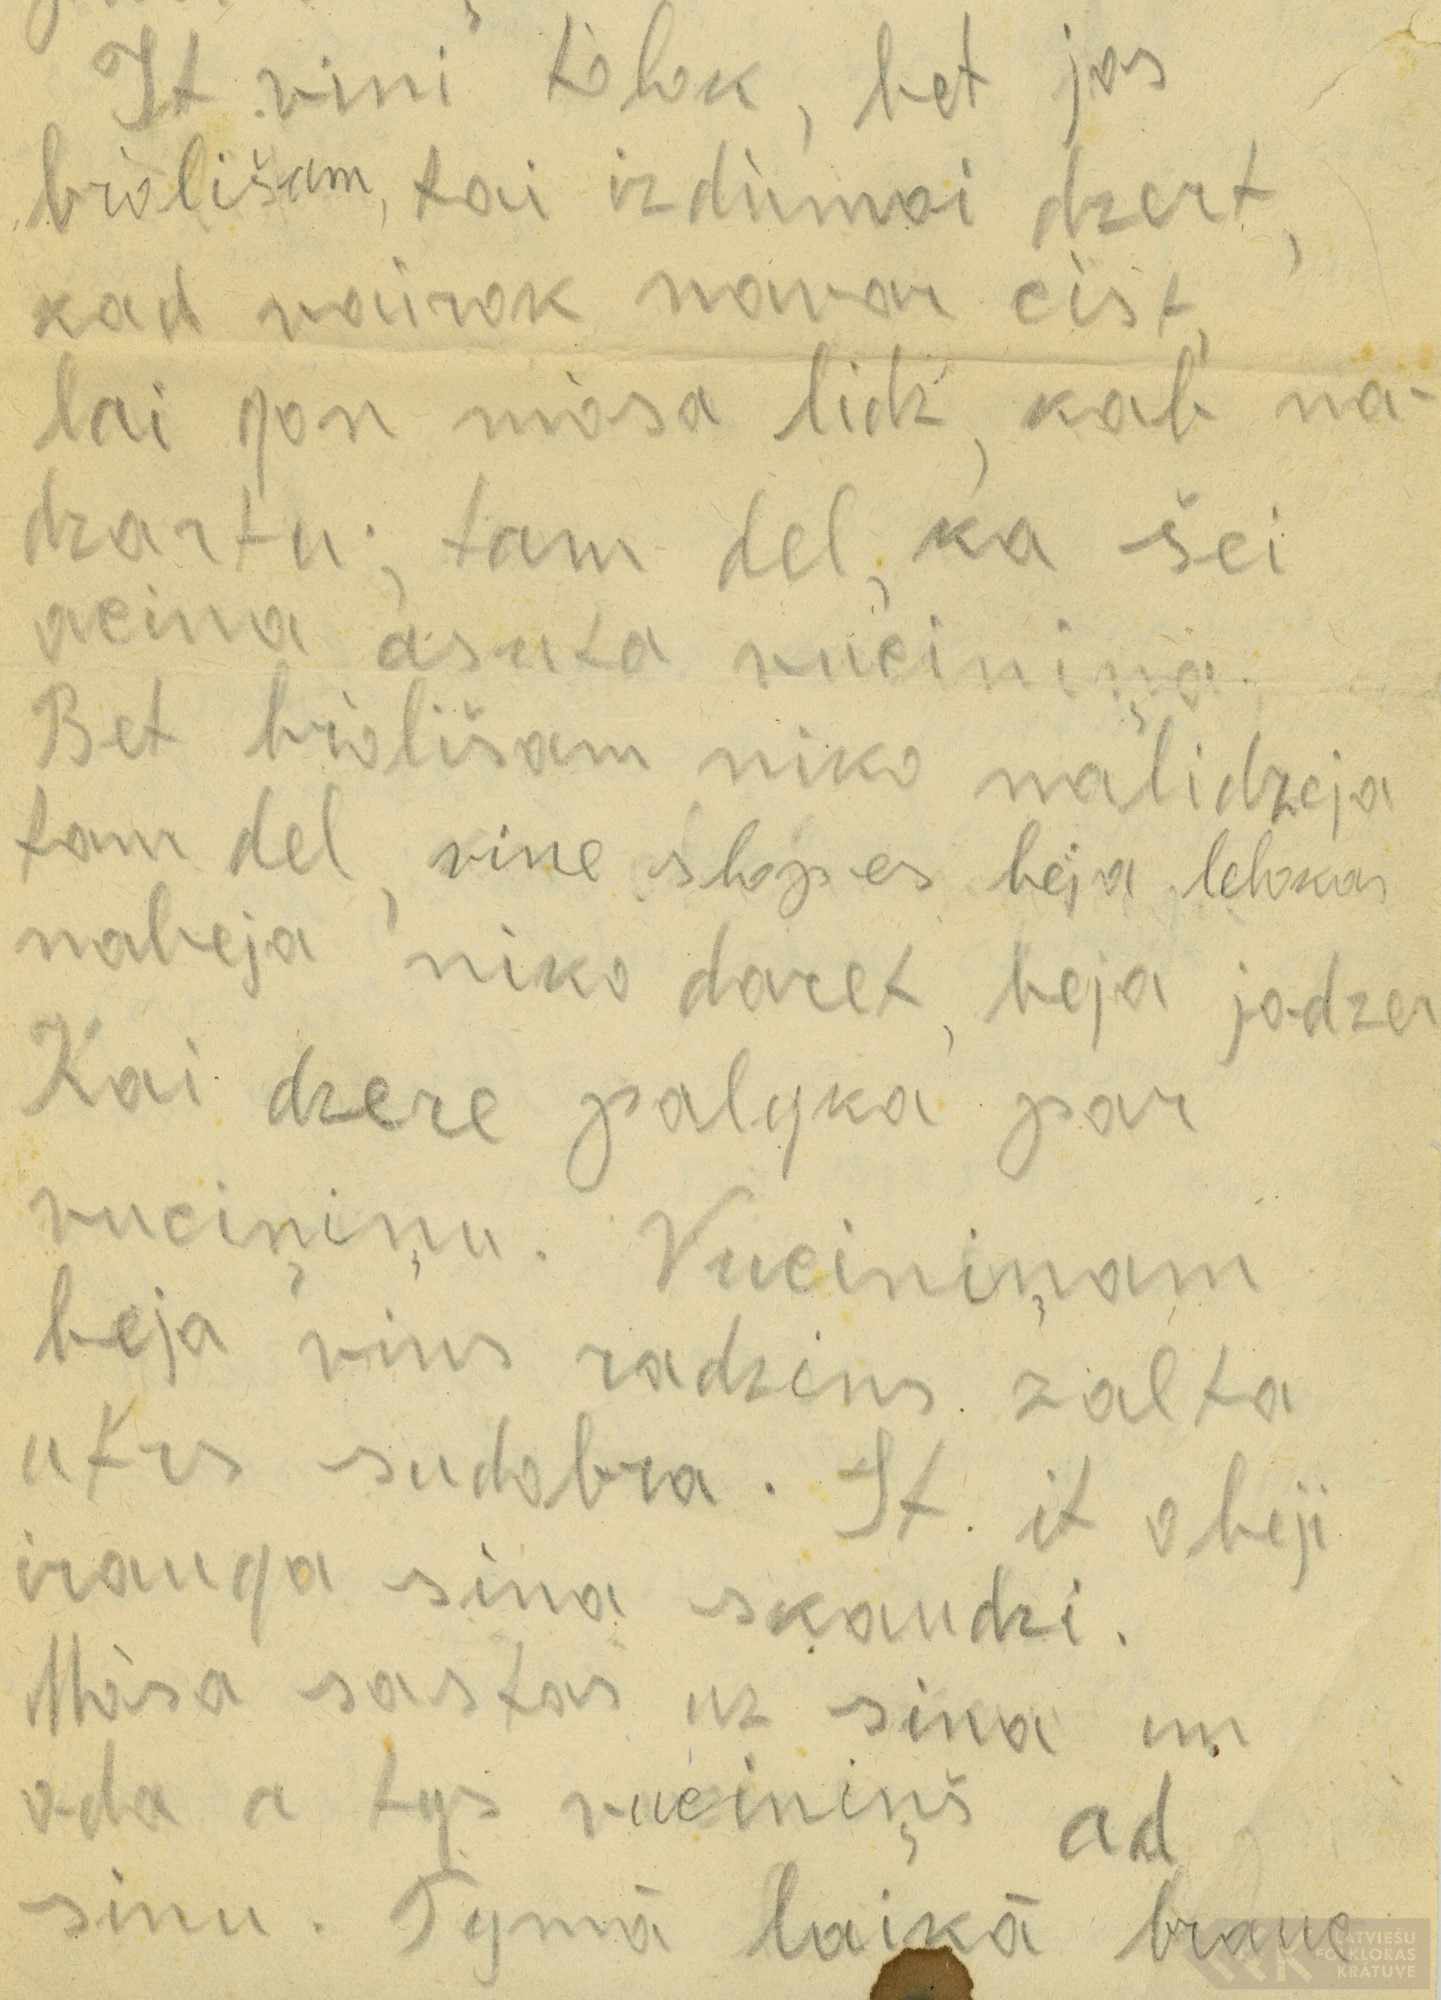 It vini tòlok, bet jos
bròlišam, tai izdùmoi dzert,
kad vairok navar cist,
lai gon mòsa lidz, kab na-
dzartu; tam del, ka šei
acina asūta vuciniņa.
Bet bròlišam niko nalidzeja
tam del, vine slopes beja lelokas
nabeja niko daret, beja jodzer
Kai dzere palyka par
vuciņiņu. Vuciniņam
beja vins radzens zalta
utrs sudobra. It it obeji
irauga sina skaudzi.
Mòsa sastas uz sina un
oda a tys vuciniņš ad
sinu. Tymā laikā brauc
LATVIEŠU
FOLKLORAS
KRĀTUVE